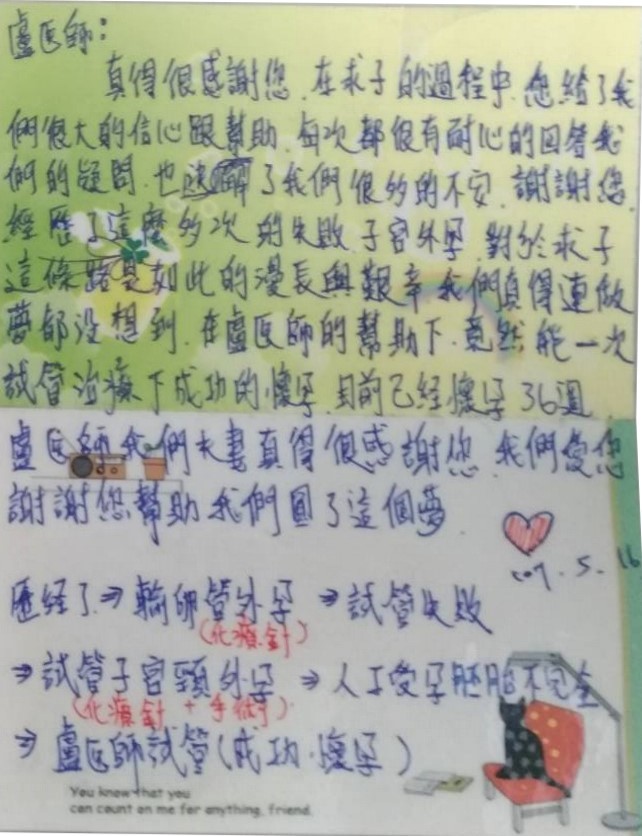 盧医師：
真得很感謝您，在求子的過程中，您給了我
們很大的信心跟幫助，每次都很有耐心的回答我
們的疑問，也決解了我們很多的不安，謝謝您，
經歷了這麼多次的失敗，子宮外孕，對於求子
這條路是如此的漫長與艱辛，我們真得連做
夢都沒想到，在盧医師的幫助下，竟然能一次
試管治療下成功的懷孕，目前已經懷孕36週
盧医師我們夫妻真得很感謝您，我們愛您
謝謝您幫助我們圓了這個夢．
107.5.16
歷經了⇒輸卵管外孕⇒試管失敗
(化療針)
⇒試管子宮頸外孕⇒人工受孕胚胎不完全
(化療針+手術)
⇒盧医師試管(成功懷孕)
You know that you
can count on me for anything, friend.